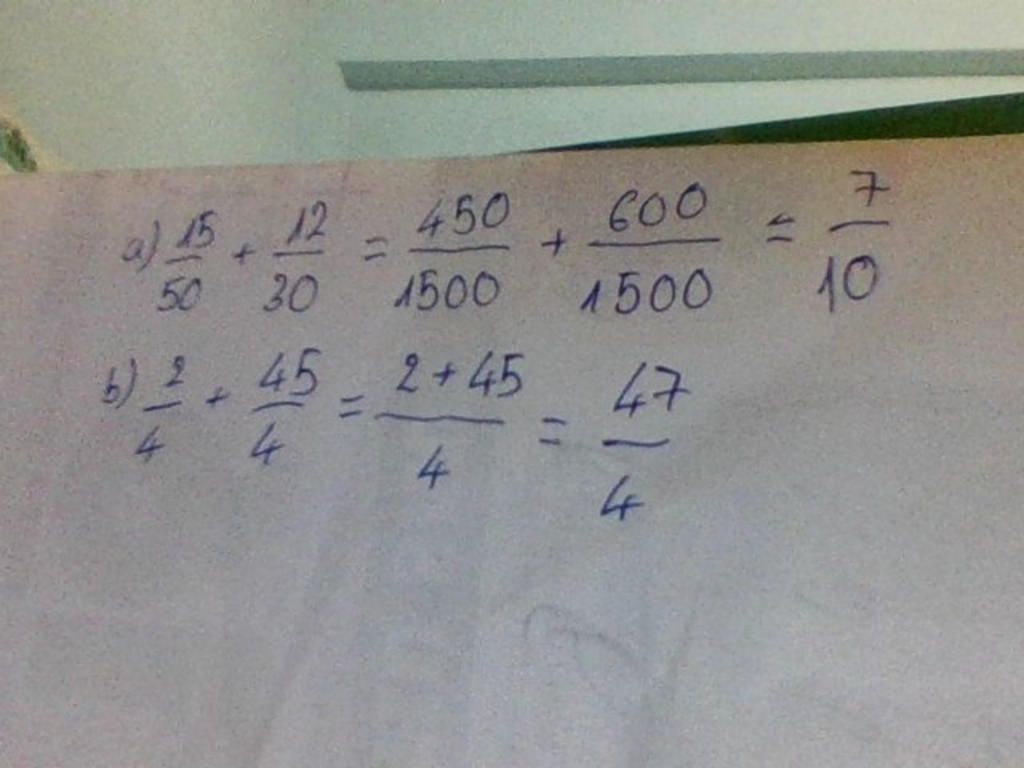 a) 15/50 + 12/30 = 450/1500 + 600/1500 = 7/10
b) 2/4 + 45/4 = 2+45/4 = 47/4